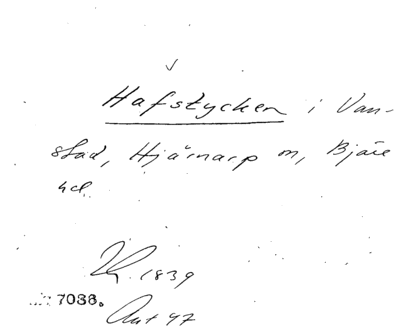 Hafstycken i Van-
stad, Hjärnarp sn, Bjäre
hd.
1839
7038.
Akt 47